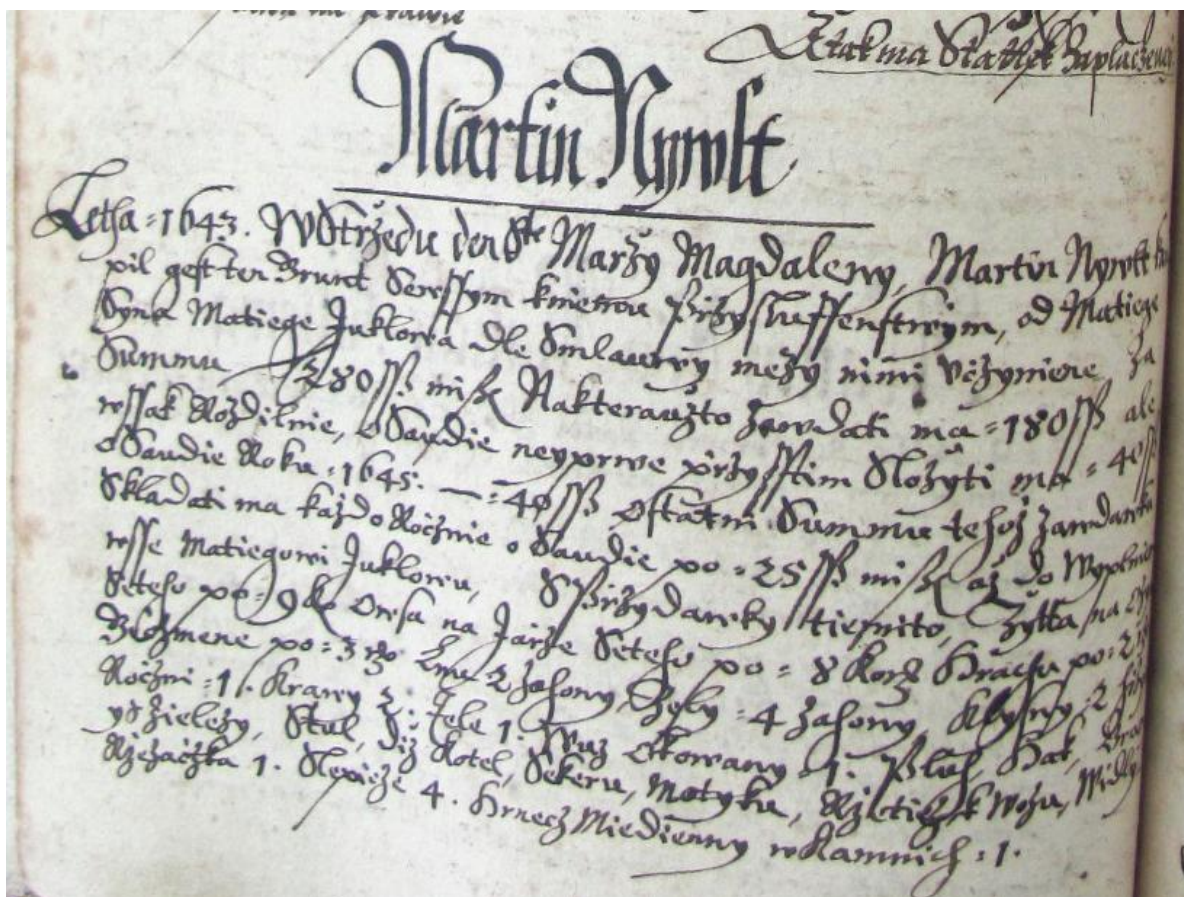 Ztak ma Statek Zaplaczenej
Martin Nywlt
Letha = 1643. W Strzedu den Ste Marzy Magdaleny, Martin Nywlt ku
pil gest ten Grunt Sewssym k niemu Przyslussenstwym, od Matiege
Syna Matiege Juklowa dle Smlauwy mezy nimi Vcžyniene Za
Summu 280 ss miß Nakterauzto Zawdati ma = 180 ss ale
wssak Rozdilnie, o Saudie neyprwe przysstim Slozyti ma = 40 ss
o Saudie Roku = 1645. — = 40 ss Ostatni Summu tehož zawdanku
Skladati ma každo Rocžnie o Saudie po = 25 ss miß až do Wyplnie
wsse Matiegowi Juklowu, S Przydawky tiemito, Žytta na
Seteho po = 9 ko Owsa na Jarže Seteho po = 8 Korž Hrachu po = 2
po = 3 2 Zahony, Zely = 4 Zahony, 2
Rocžni = 1. Krawy 2. Tele 1. Wuz Okowany = 1. Pluh, Hak,
Stul, Diž Kotel, Sekeru, Motyku, Ržetiez k Wozu, Widly
Ržezacžka 1. Slepicže 4. Hrnecz Miedienny w Kamnich = 1.